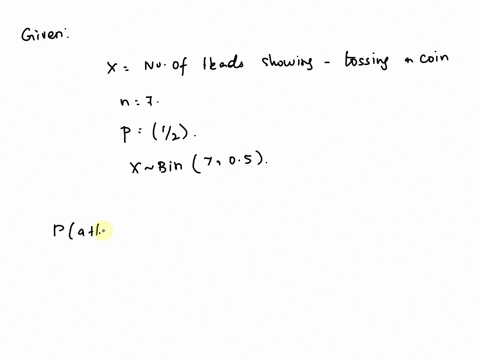 Given:
X = No. of Heads showing - tossing a coin
n = 7.
p = (1/2).
X ~ Bin (7, 0.5).
P(at